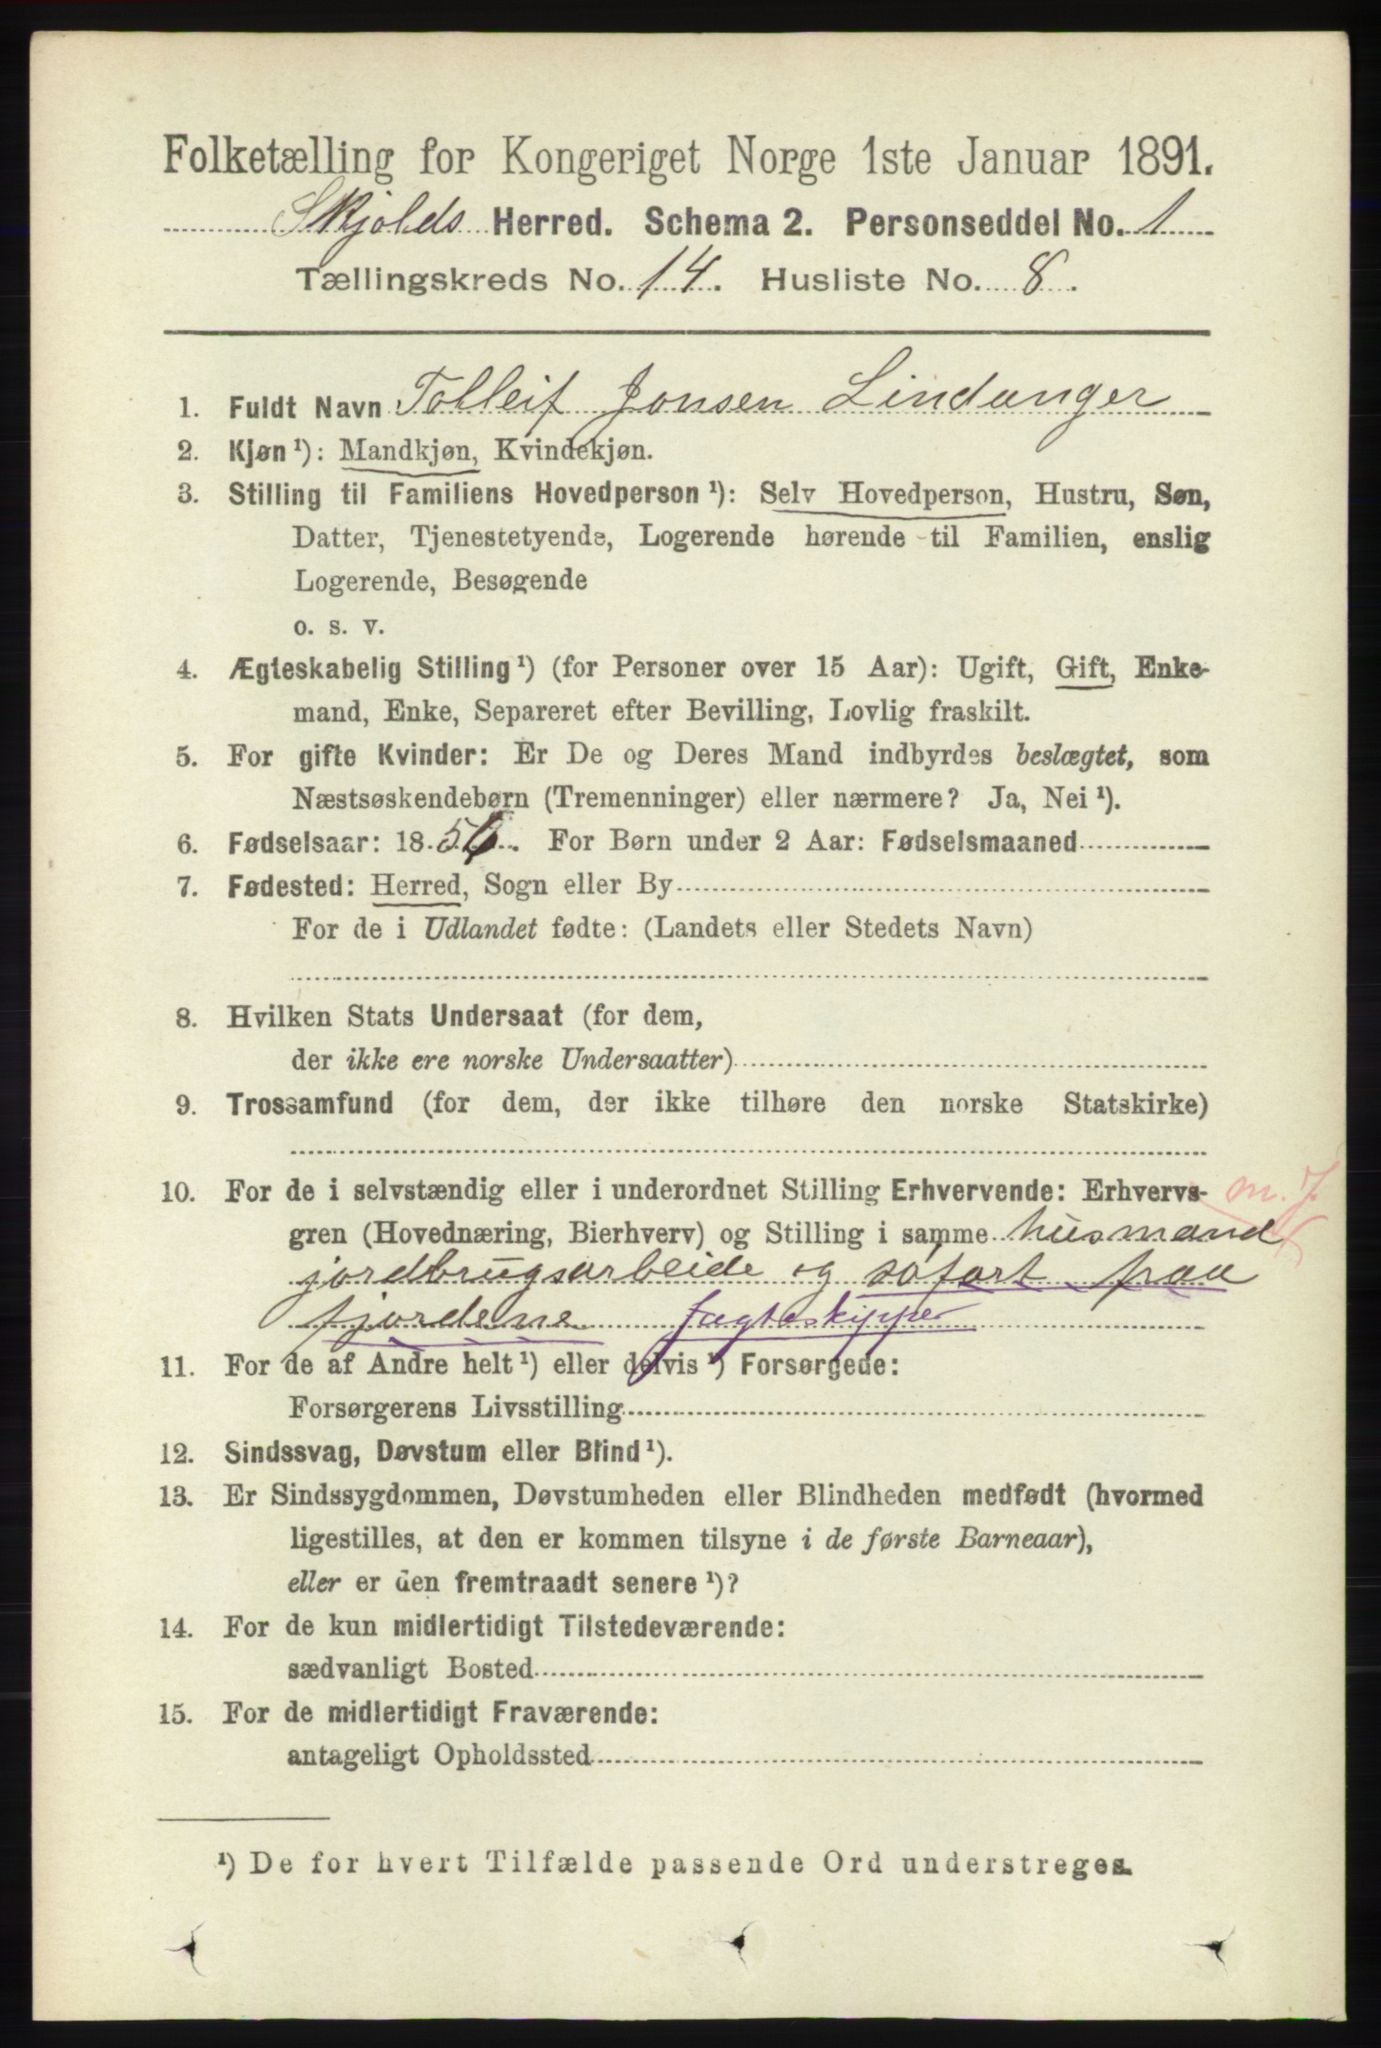 Folketælling for Kongeriget Norge 1ste Januar 1891.
Skjolds Herred. Schema 2. Personseddel No. 1
Tællingskreds No. 14. Husliste No. 8.
1. Fuldt Navn Tolleif Jonsen Lindanger
2. Kjøn¹): Mandkjøn, Kvindekjøn.
3. Stilling til Familiens Hovedperson¹): Selv Hovedperson, Hustru, Søn,
Datter, Tjenestetyende, Logerende hørende til Familien, enslig
Logerende, Besøgende
o. s. v.
4. Ægteskabelig Stilling¹) (for Personer over 15 Aar): Ugift, Gift, Enke-
mand, Enke, Separeret efter Bevilling, Lovlig fraskilt.
5. For gifte Kvinder: Er De og Deres Mand indbyrdes beslægtet, som
Næstsøskendebørn (Tremenninger) eller nærmere? Ja, Nei¹).
6. Fødselsaar: 1856. For Børn under 2 Aar: Fødselsmaaned
7. Fødested: Herred, Sogn eller By
For de i Udlandet fødte: (Landets eller Stedets Navn)
8. Hvilken Stats Undersaat (for dem,
der ikke ere norske Undersaatter)
9. Trossamfund (for dem, der ikke tilhøre den norske Statskirke)
10. For de i selvstændig eller i underordnet Stilling Erhvervende: Erhvervs- m. J.
gren (Hovednæring, Bierhverv) og Stilling i samme husmand
jordbrugsarbeide og søfart paa
fjordene Jagteskipper
11. For de af Andre helt¹) eller delvis¹) Forsørgede:
Forsørgerens Livsstilling
12. Sindssvag, Døvstum eller Blind¹).
13. Er Sindssygdommen, Døvstumheden eller Blindheden medfødt (hvormed
ligestilles, at den er kommen tilsyne i de første Barneaar),
eller er den fremtraadt senere¹)?
14. For de kun midlertidigt Tilstedeværende:
sædvanligt Bosted
15. For de midlertidigt Fraværende:
antageligt Opholdssted
¹) De for hvert Tilfælde passende Ord understreges.